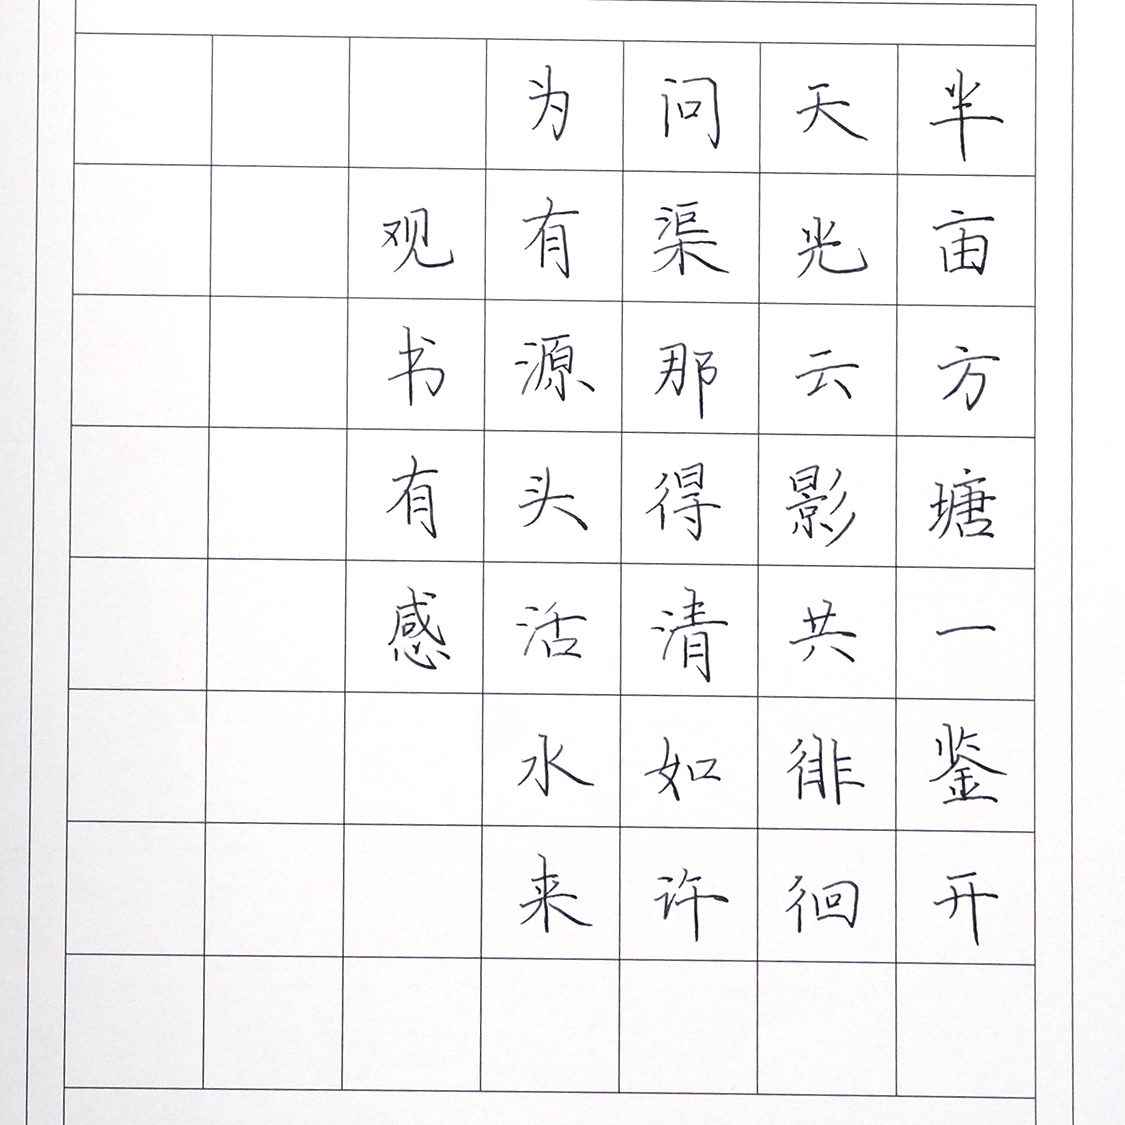 半亩方塘一鉴开
天光云影共徘徊
问渠那得清如许
为有源头活水来
观书有感